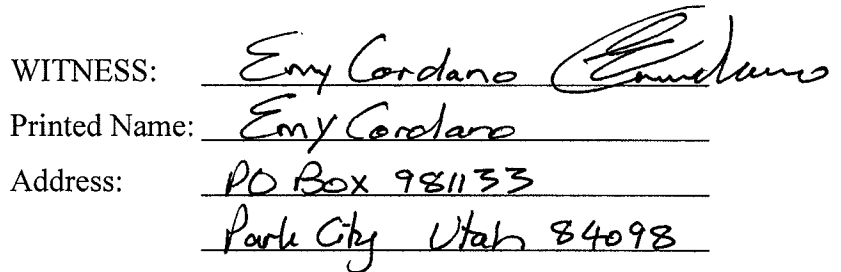 WITNESS: Emy Cordano
Printed Name: Emy Cordano
Address: PO Box 981133
Park City Utah 84098